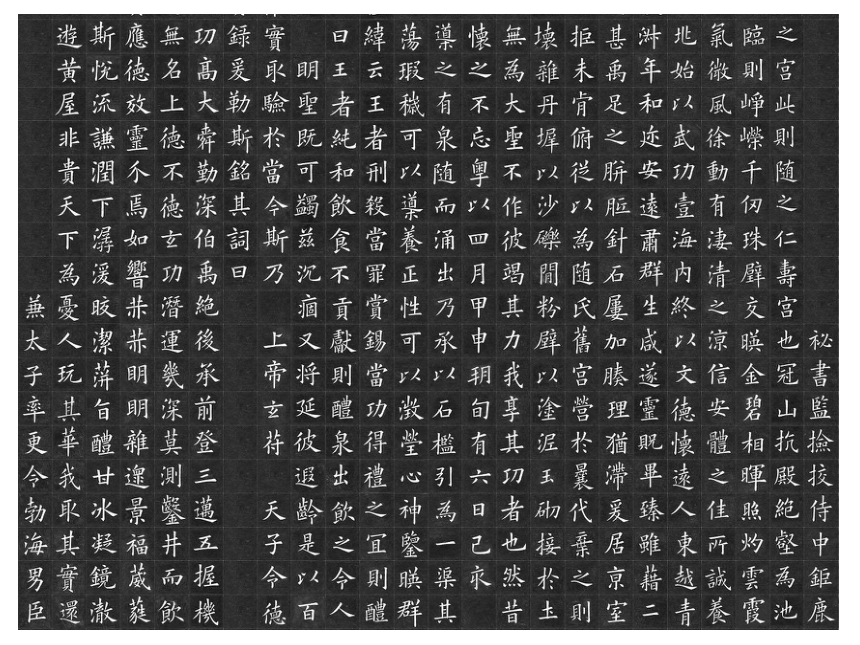 秘書監撿挍侍中鉅鹿
之宮此則随之仁壽宮也冠山抗殿絶壑為池
臨則崢嶸千仞珠壁交暎金碧相暉照灼雲霞
氣微風徐動有淒清之涼信安體之佳所誠養
兆始以武功壹海内終以文德懷遠人東越青
淑年和迩安遠肅群生咸遂靈貺畢臻雖藉二
甚禹足之胼胝針石屢加腠理猶滯爰居京室
拒未肯俯従以為随氏舊宮營於曩代棄之則
壞雜丹墀以沙礫間粉壁以塗泥玉砌接於土
無為大聖不作彼竭其力我享其功者也然昔
懷之不忘粵以四月甲申朔旬有六日己亥
導之有泉随而涌出乃承以石檻引為一渠其
蕩瑕穢可以導養正性可以澂瑩心神鑒暎群
緯云王者刑殺當罪賞錫當功得禮之宜則醴
曰王者純和飲食不貢獻則醴泉出飲之令人
明聖既可蠲茲沉痼又将延彼遐齡是以百
實取驗於當今斯乃 上帝玄符 天子令德
録爰勒斯銘其詞曰
功高大舜勤深伯禹絶後承前登三邁五握機
無名上德不德玄功潜運幾深莫測鑿井而飲
應德效靈介焉如響赫赫明明雜遝景福葳蕤
斯悦流謙潤下潺湲皎潔蓱旨醴甘冰凝鏡澈
遊黄屋非貴天下為憂人玩其華我取其實還
兼太子率更令勃海男臣